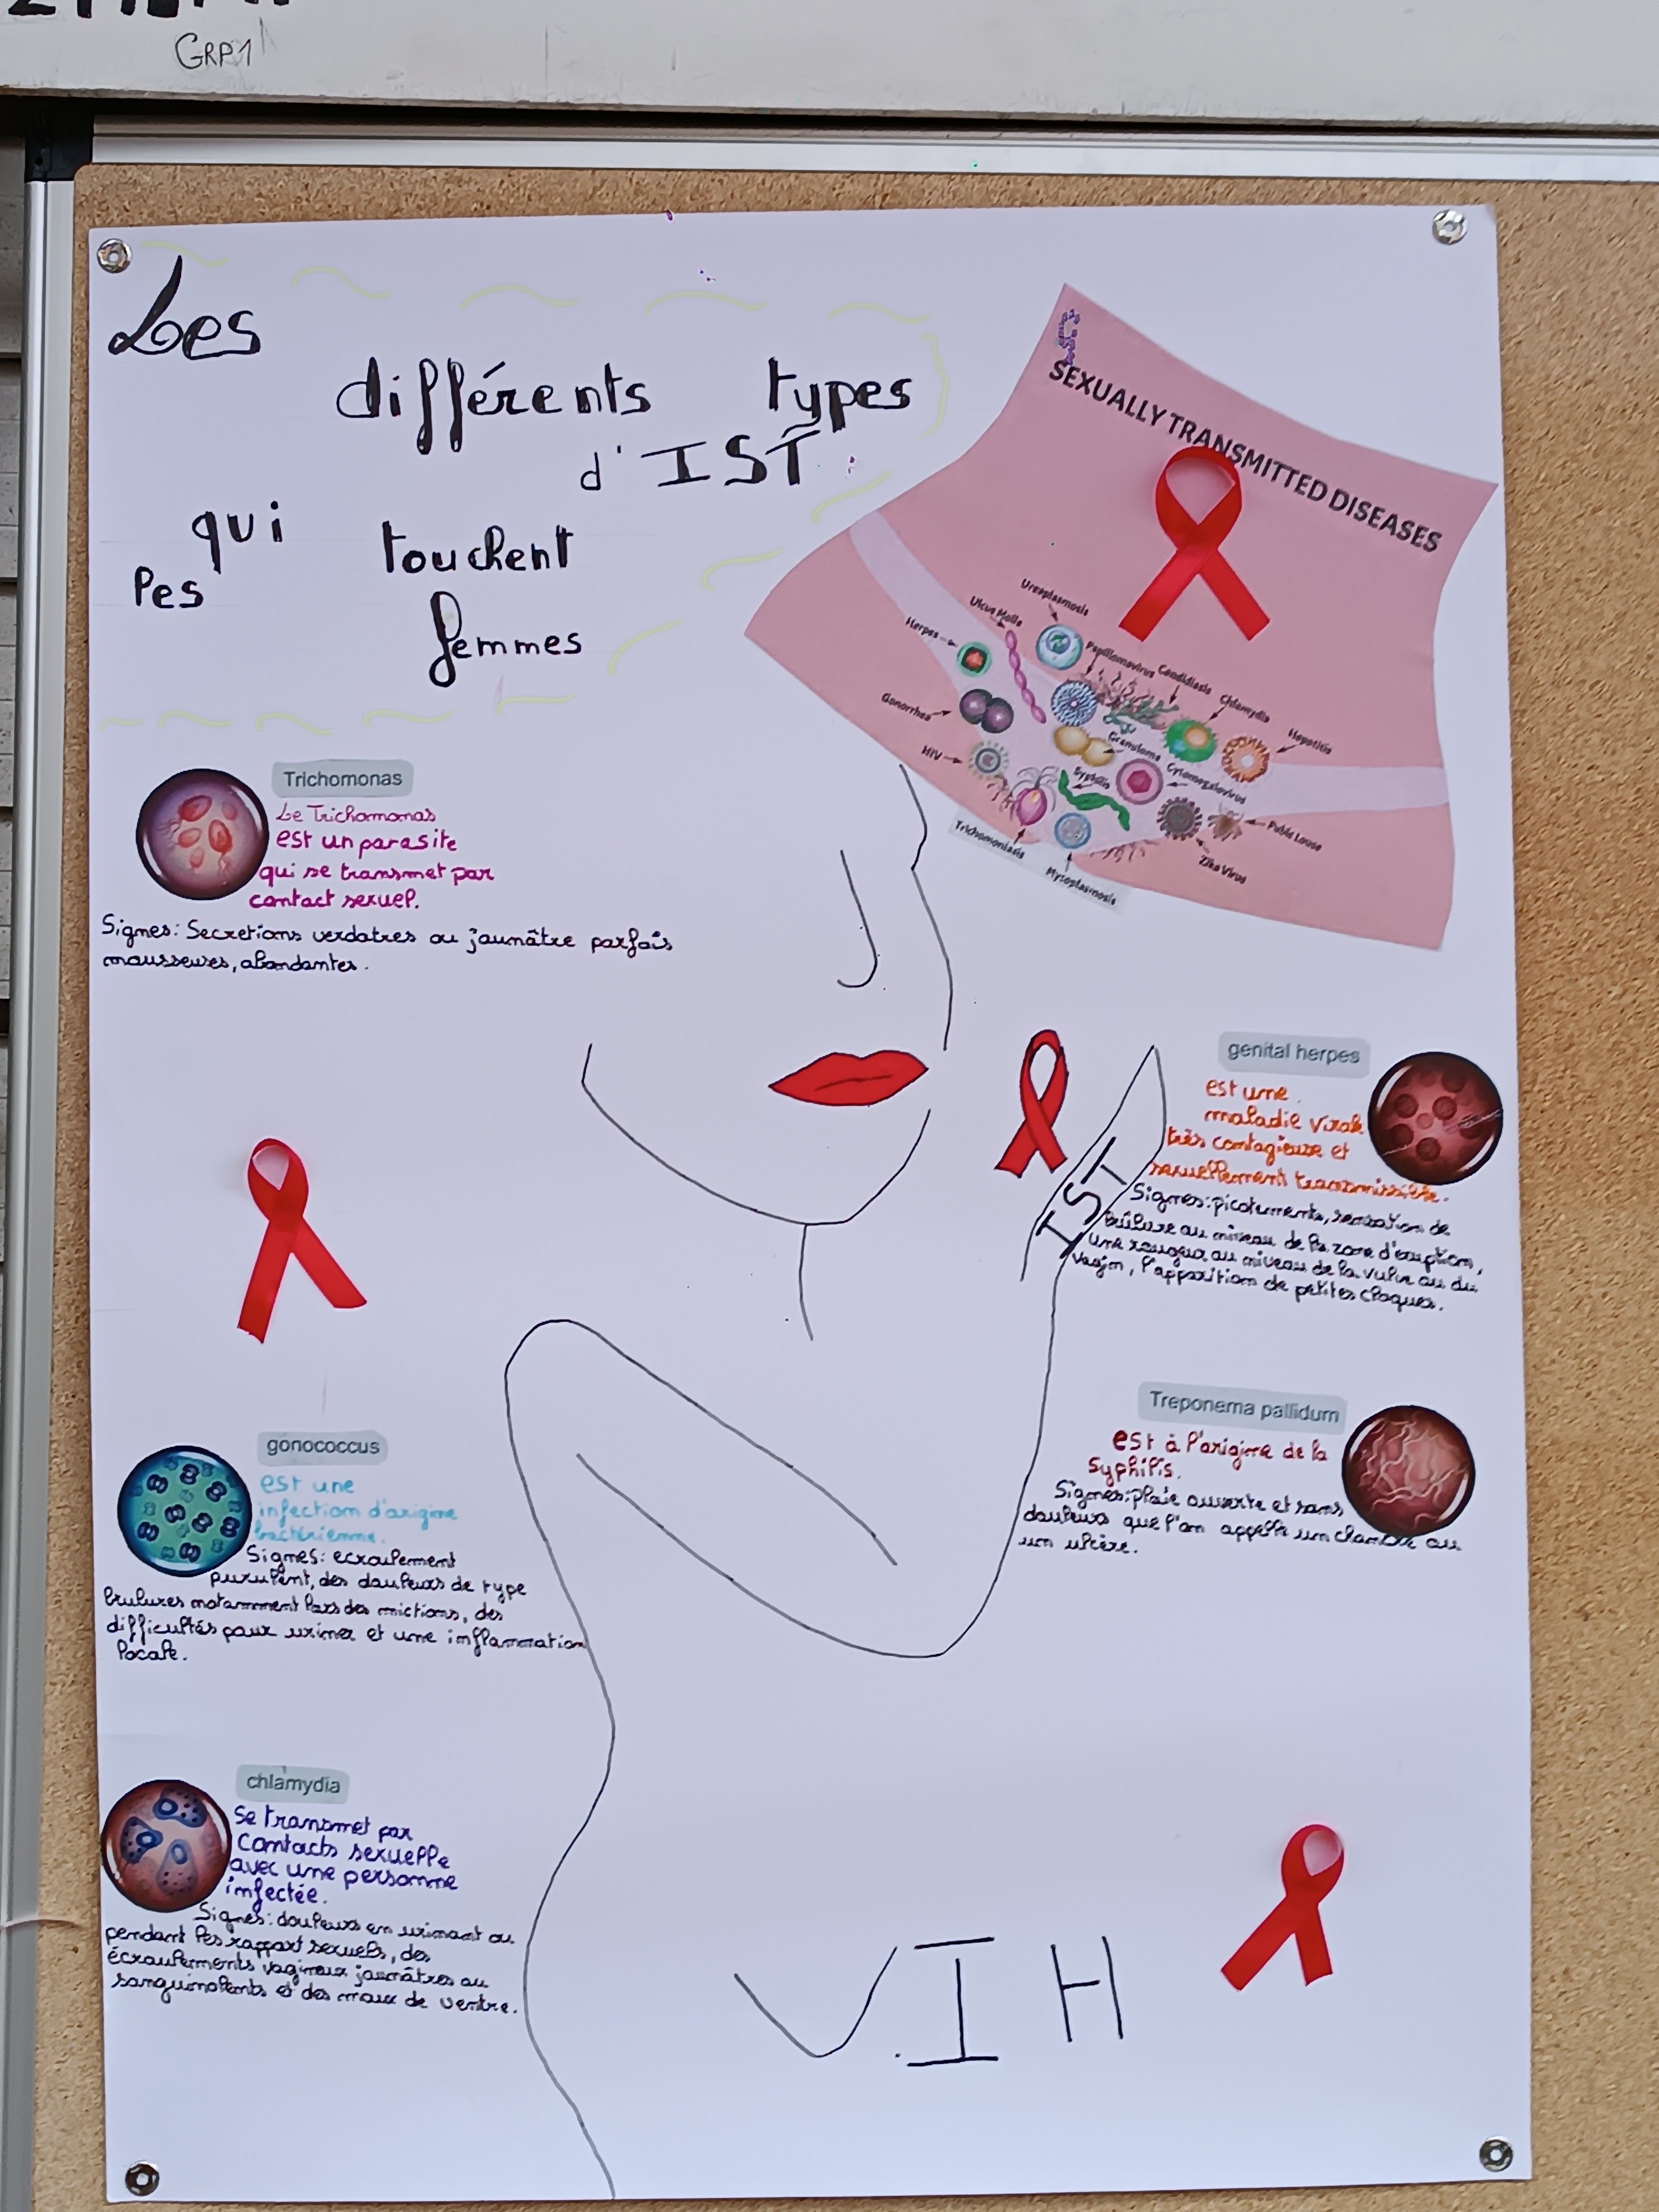 GRP1
Les
différents types
d'IST
qui touchent
les
femmes
SEXUALLY TRANSMITTED DISEASES
Ureoplasmosis
Ulcus Molle
Herpes
Papillomavirus
Candidiasis
Chlamydia
Gonorrhea
Hepatitis
Granuloma
HIV
Syphilis
Cytomegalovirus
Trichomoniasis
Pubic Louse
Zika Virus
Mycoplasmosis
Trichomonas
Le Trichomonas
est un parasite
qui se transmet par
contact sexuel.
Signes: Secretions verdatres ou jaunâtre parfois
mousseuses, abondantes.
genital herpes
est une
maladie virale
très contagieuse et
sexuellement transmissible.
Signes: picotements, sensation de
brûlure au niveau de la zone d'éruption,
une rougeur au niveau de la vulve ou du
vagin, l'apparition de petites cloques.
IST
gonococcus
est une
infection d'origine
bactérienne.
Signes: ecoulement
purulent, des douleurs de type
brulures notamment lors des mictions, des
difficultés pour uriner et une inflammation
locale.
Treponema pallidum
est à l'origine de la
syphilis.
Signes: plaie ouverte et sans
douleurs que l'on appelle un chancre ou
un ulcère.
chlamydia
Se transmet par
contacts sexuelle
avec une personne
infectée.
Signes: douleurs en urinant ou
pendant les rapport sexuels, des
écoulements vaginaux jaunâtres ou
sanguinolents et des maux de ventre.
V.I H